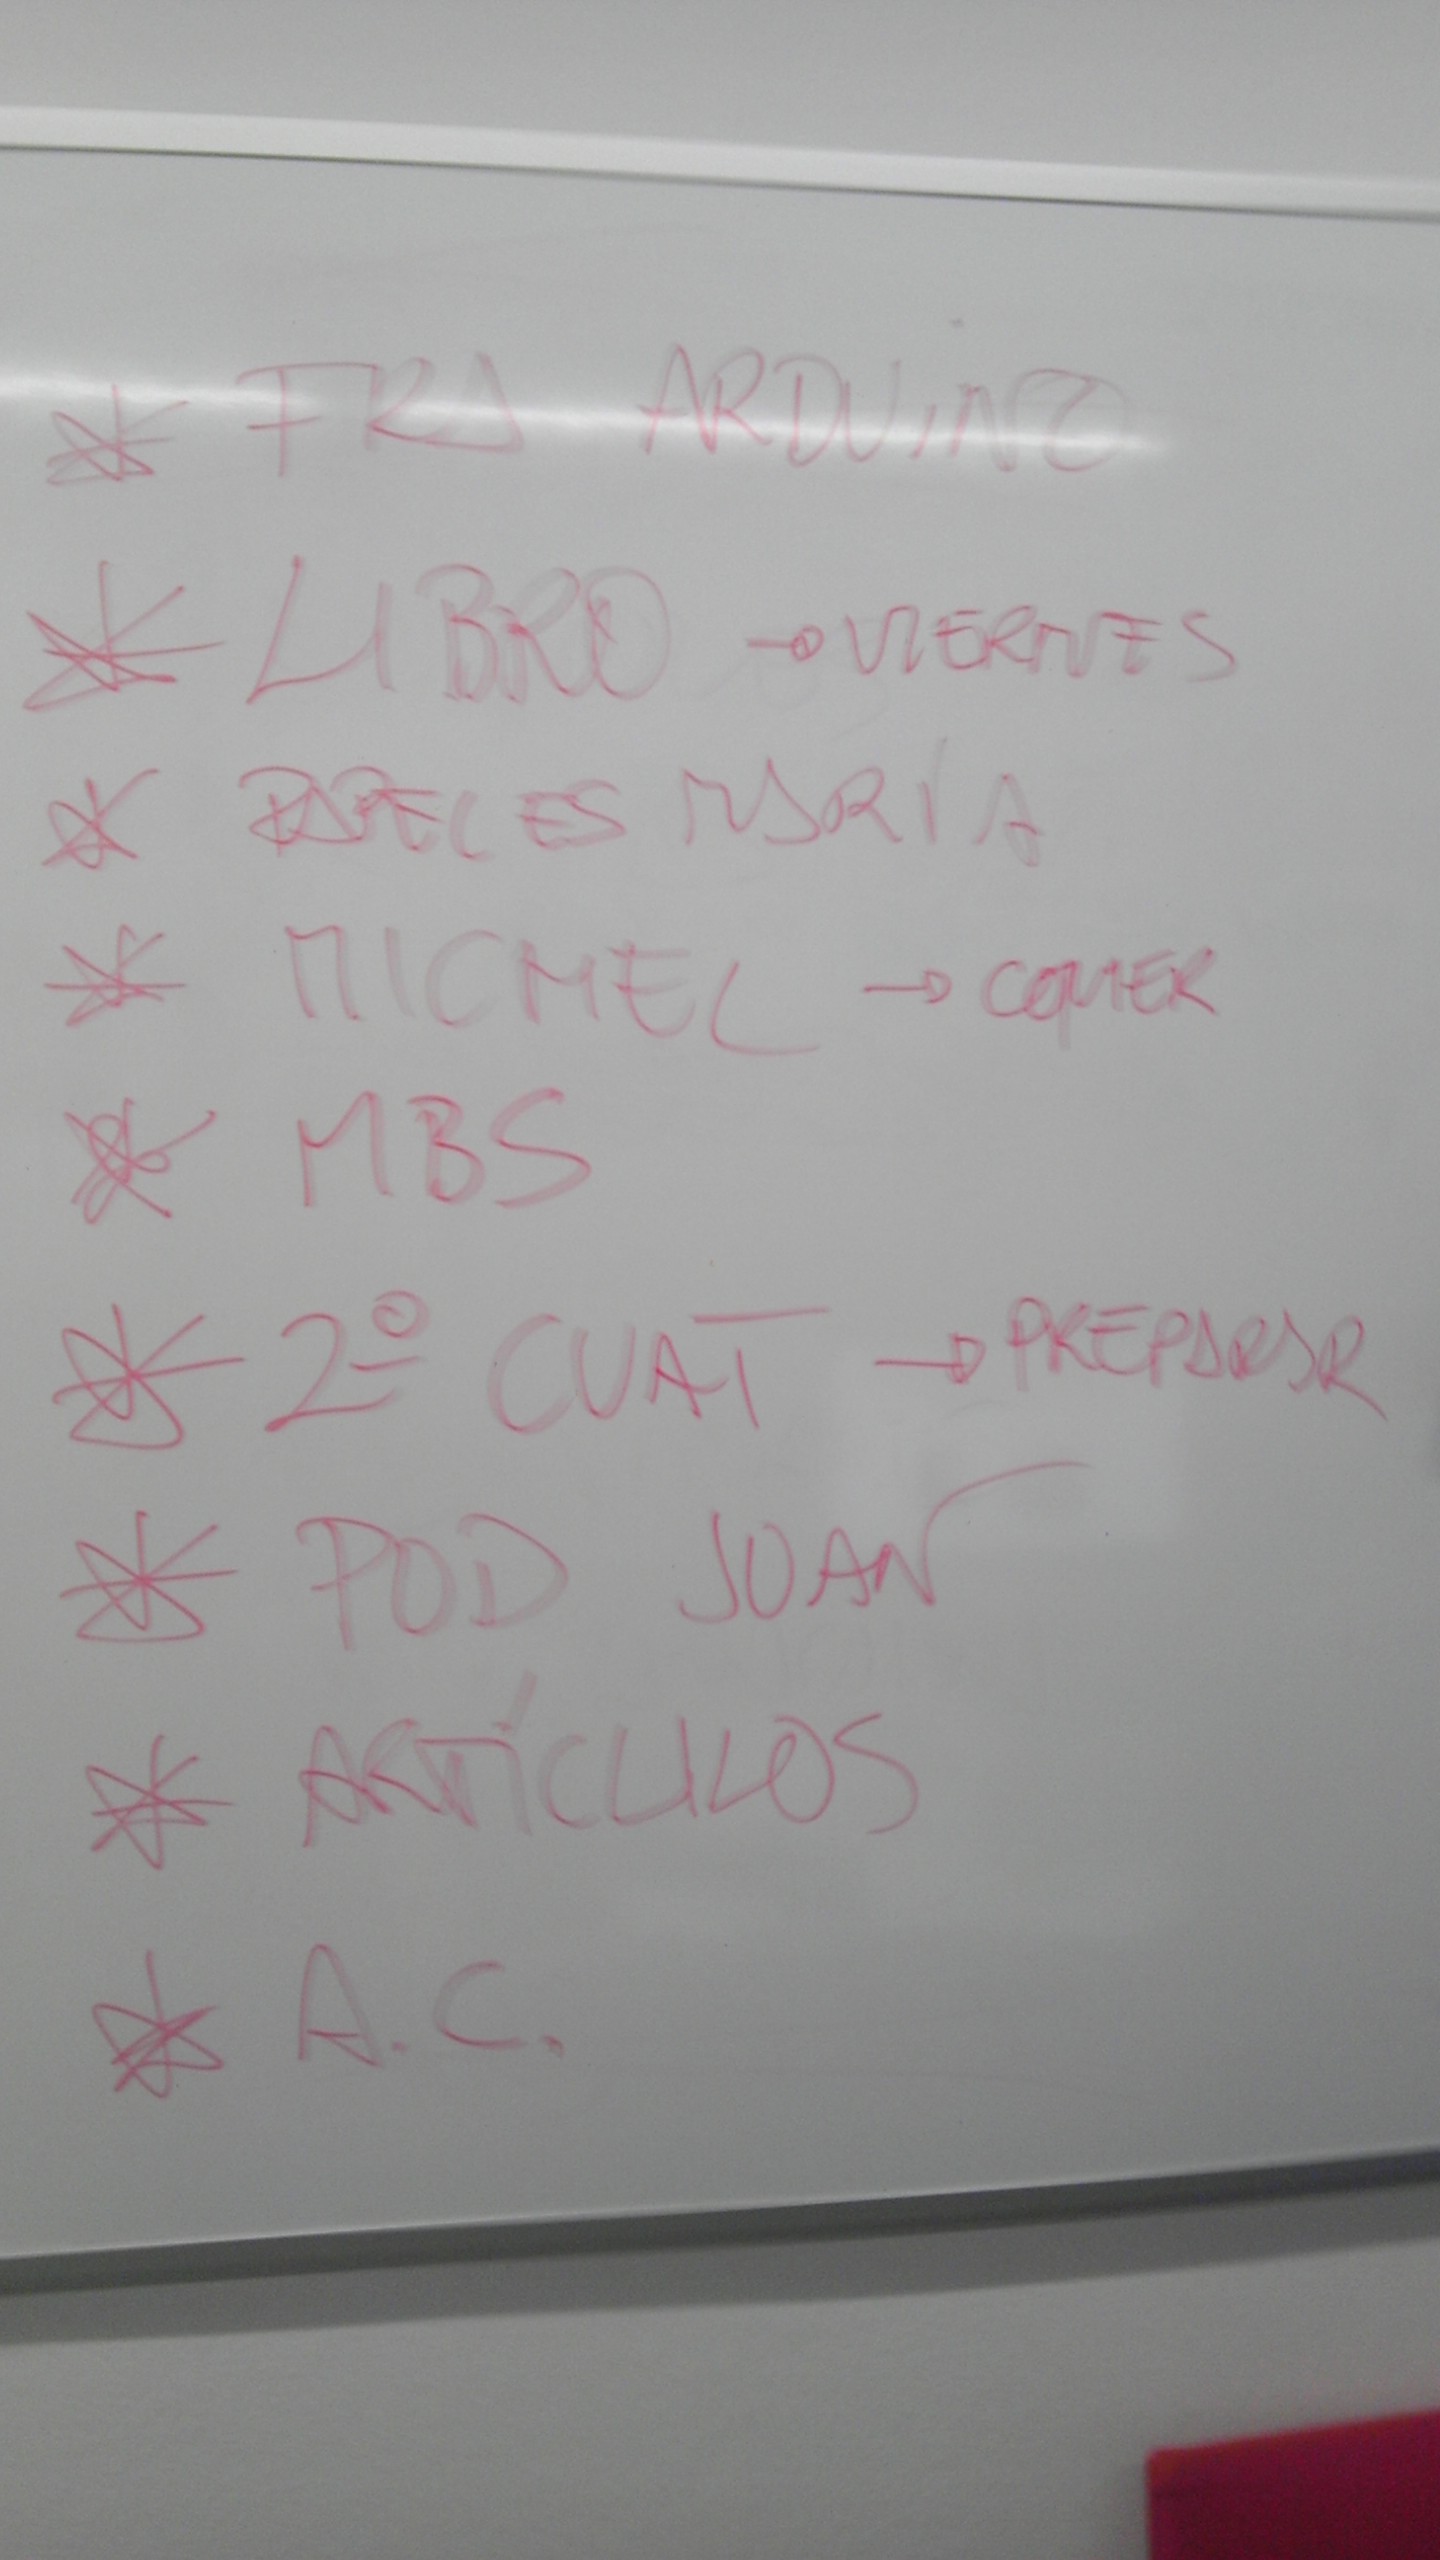 * FRA ARDUINO
* LIBRO → VIERNES
* PAPELES MARÍA
* MICHEL → COMER
* MBS
* 2º CUAT → PREPARAR
* POD JUAN
* ARTÍCULOS
* A.C.